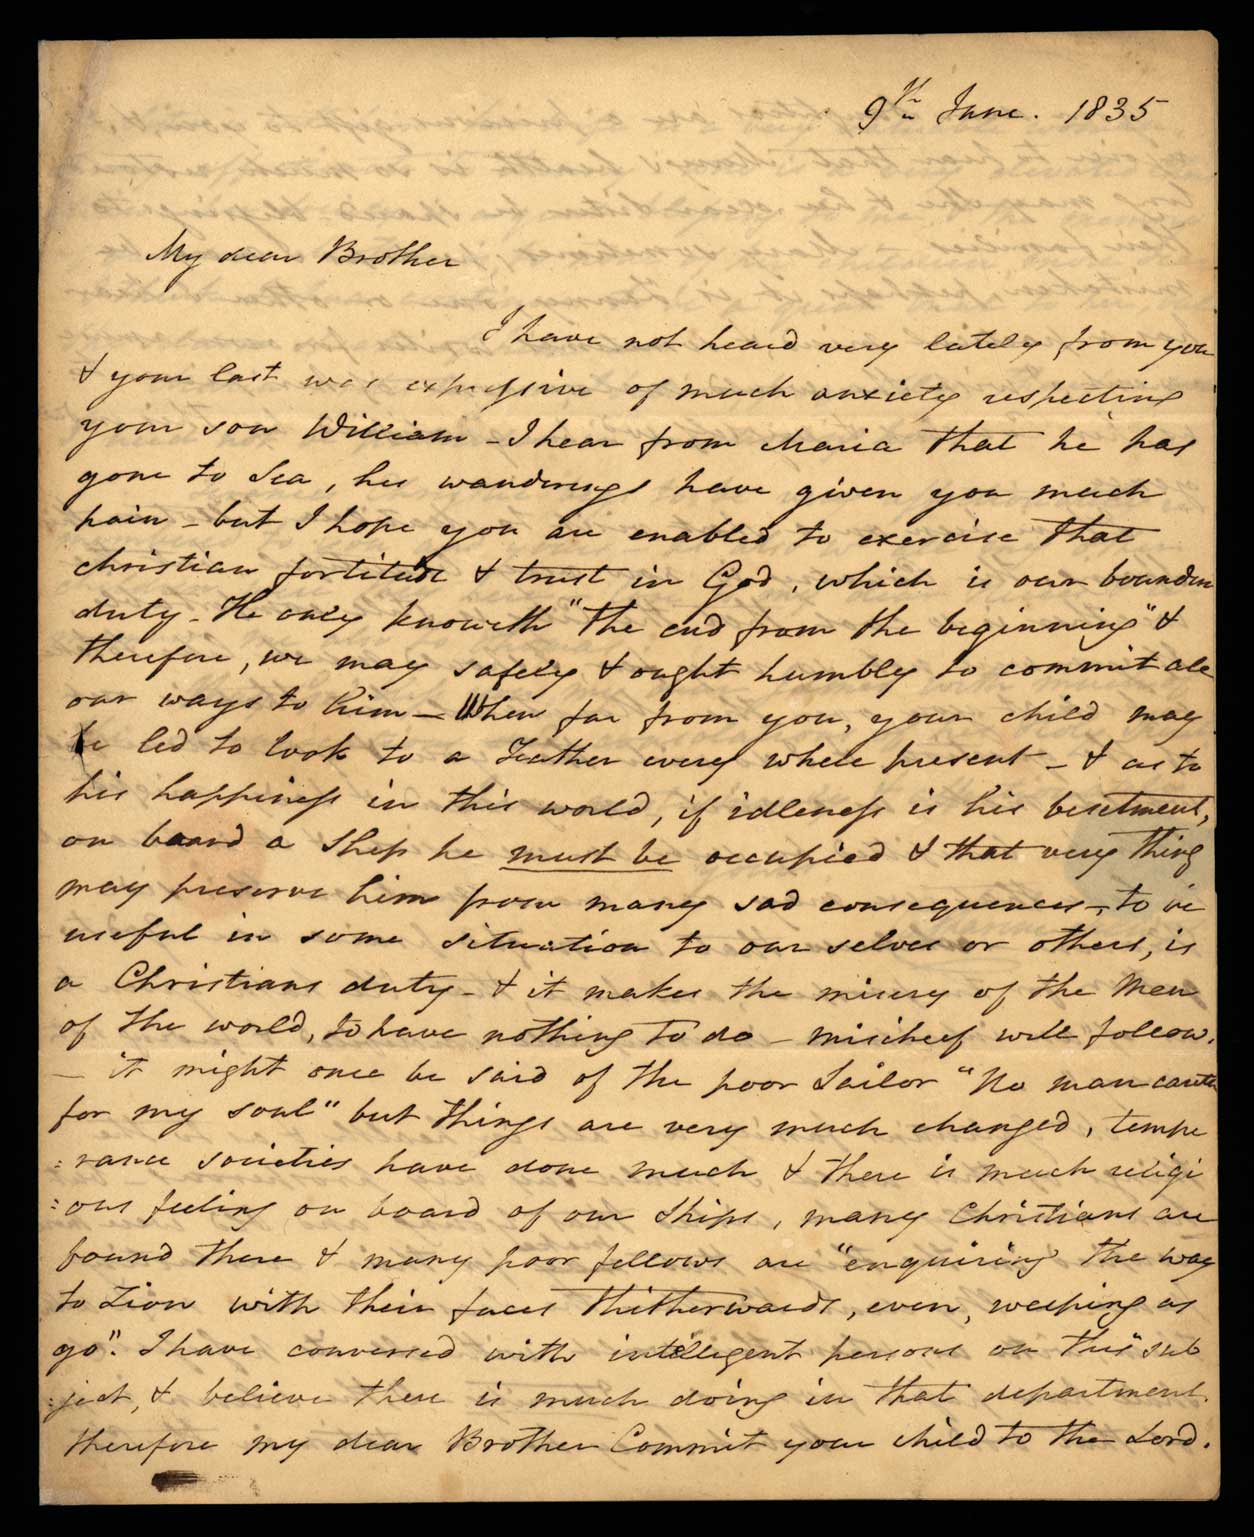 9th June. 1835
My dear Brother
I have not heard very lately from you
& your last was expressive of much anxiety respecting
your son William - I hear from Maria that he has
gone to Sea, his wanderings have given you much
pain - but I hope you are enabled to exercise that
christian fortitude & trust in God, which is our bounden
duty - He only knoweth "the end from the beginning" &
therefore, we may safely & ought humbly to commit all
our ways to him - When far from you, your child may
be led to look to a Father every where present - & as to
his happiness in this world, if idleness is his besetment,
on board a Ship he must be occupied & that very thing
may preserve him from many sad consequences - to be
useful in some situation to our selves or others, is
a Christians duty - & it makes the misery of the Men
of the world, to have nothing to do - mischief will follow.
- it might once be said of the poor Sailor "No man careth
for my soul" but things are very much changed, tempe
:rance societies have done much & there is much religi
:ous feeling on board of our Ships, many Christians are
found there & many poor fellows are "enquiring the way
to Zion with their faces thitherwards, even, weeping as
go". I have conversed with intelligent persons on this sub
:ject, & believe there is much doing in that department.
therefore my dear Brother Commit your child to the Lord.